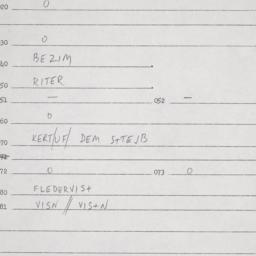 20 0
30 0
40 BEZIM
50 RITER
51 — 052 —
60 0
70 KERT/UF/ DEM S+TEJB
72 0 073 0
80 FLEDERVIS+
81 VISN // VIS+N